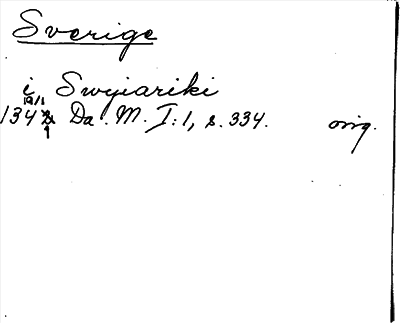 Sverige
i Swyiariki
19/1
134 Da. M. I:1, s. 334. orig.